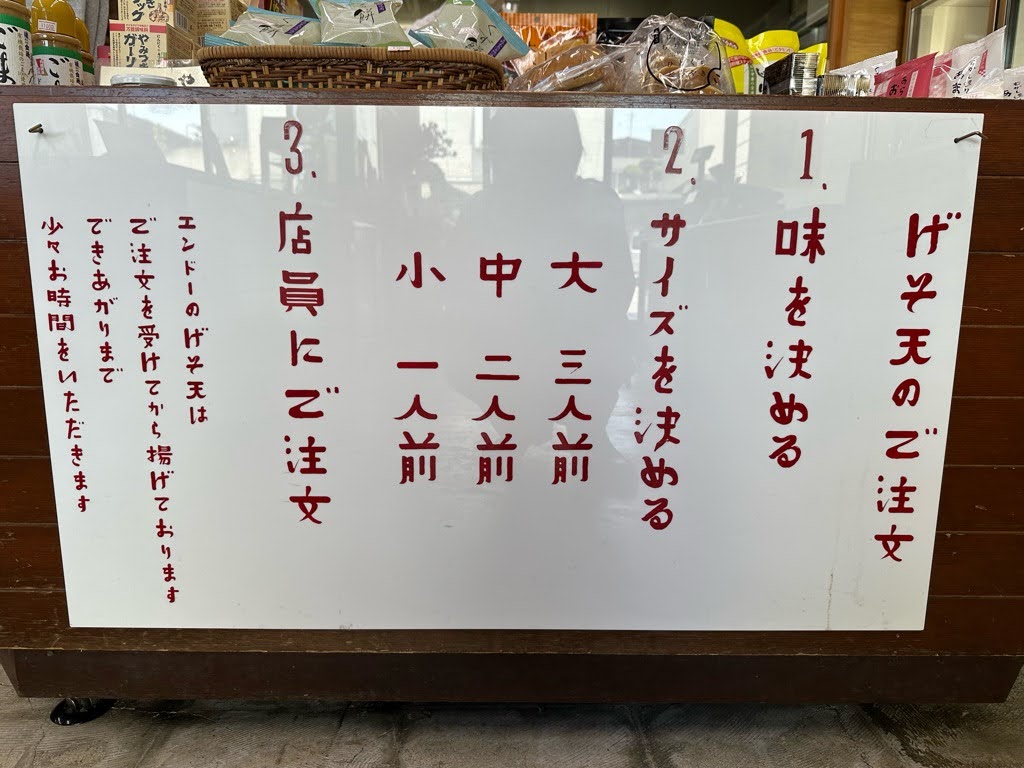 げそ天のご注文
1.味を決める
2.サイズを決める
大 三人前
中 二人前
小 一人前
3.店員にご注文
エンドーのげそ天は
ご注文を受けてから揚げております
できあがりまで
少々お時間をいただきます